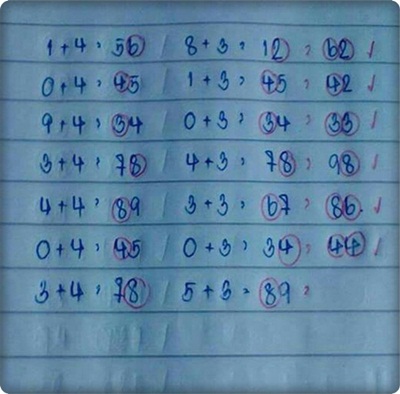 1+4, 56 / 8+3, 12, 62 ✓
0+4, 45 / 1+3, 45, 42 ✓
9+4, 34 / 0+3, 34, 33 ✓
3+4, 78 / 4+3, 78, 98 ✓
4+4, 89 / 3+3, 67, 86. ✓
0+4, 45 / 0+3, 34, 44 ✓
3+4, 78 / 5+3, 89,